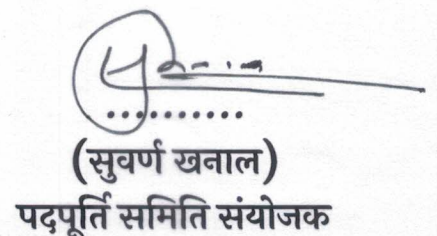 ..........
(सुवर्ण खनाल)
पदपूर्ति समिति संयोजक